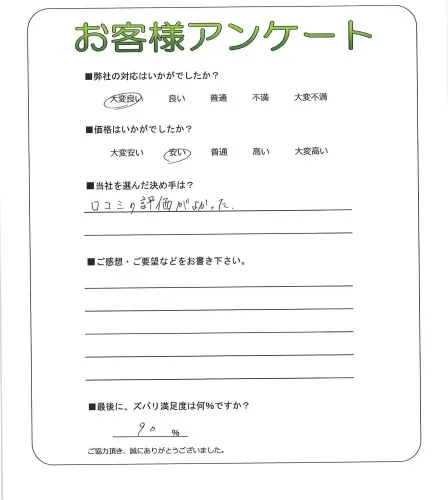 お客様アンケート
■弊社の対応はいかがでしたか？
大変良い 良い 普通 不満 大変不満
■価格はいかがでしたか？
大変安い 安い 普通 高い 大変高い
■当社を選んだ決め手は？
口コミの評価がよかった.
■ご感想・ご要望などをお書き下さい。
■最後に、ズバリ満足度は何%ですか？
90 %
ご協力頂き、誠にありがとうございました。